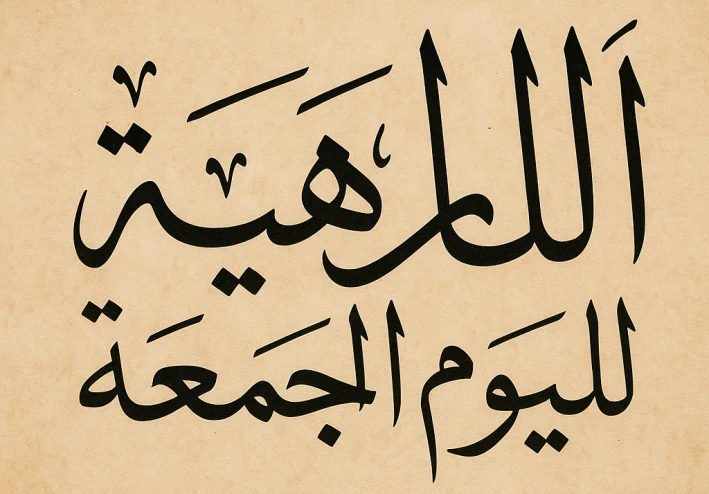 اَللارهَيَة
لليَوم الجمَعَة